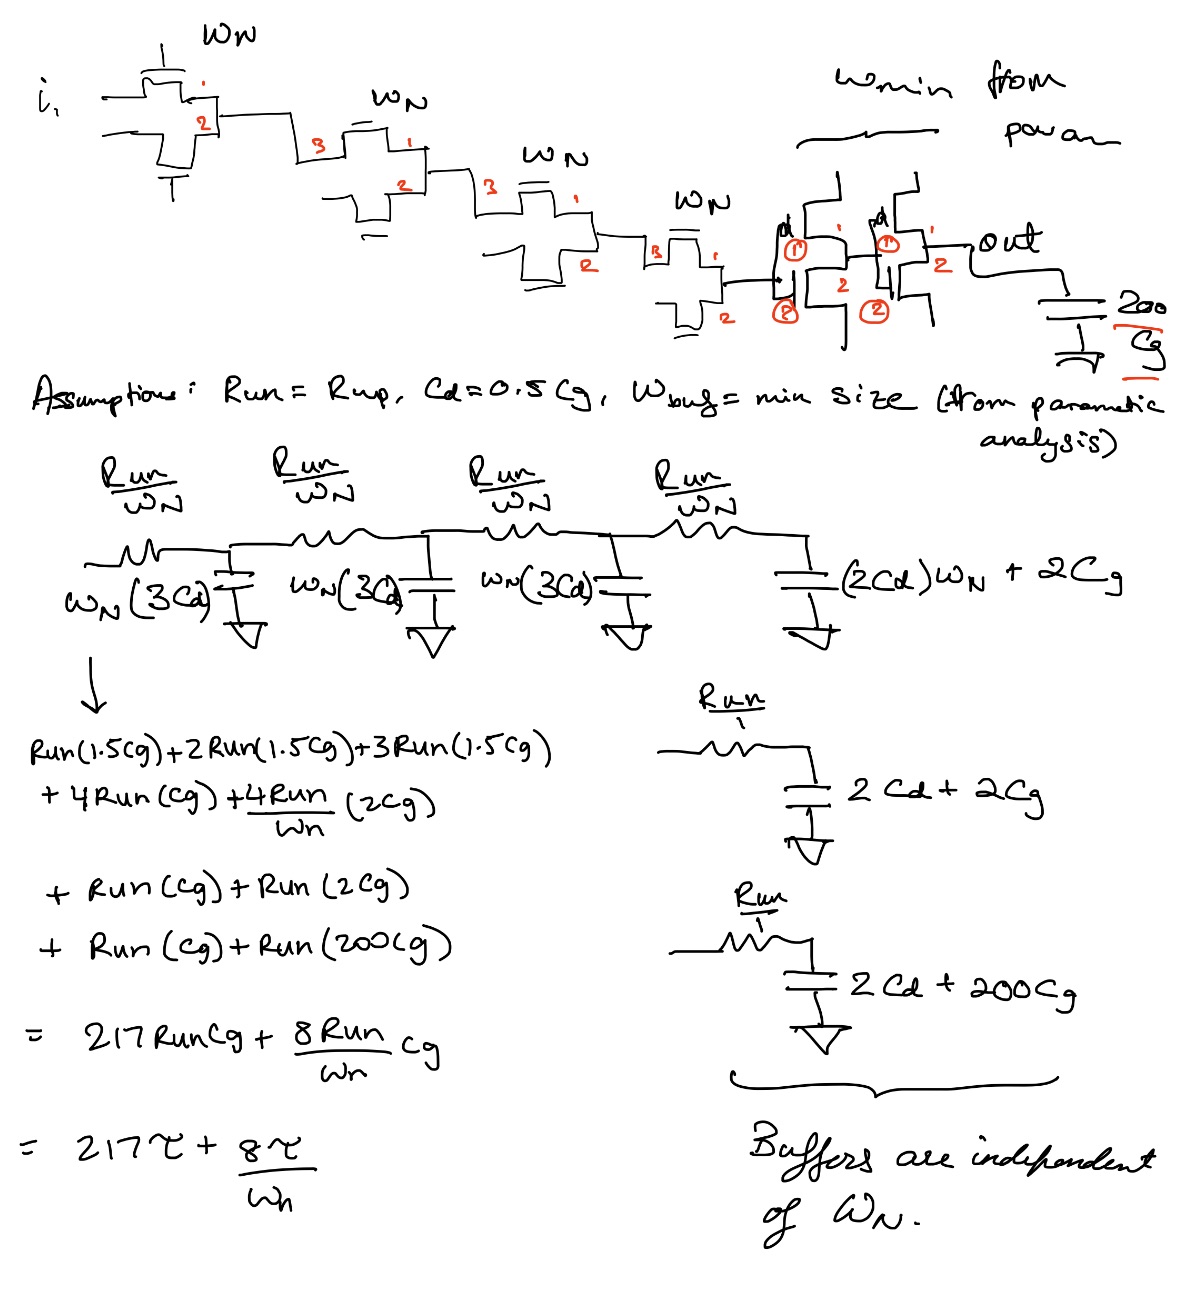 WN
i.
1
2
WN
3
1
2
WN
3
1
2
WN
3
1
2
Wmin from
param
d
1
2
1
2
d
1
2
1
2
out
200
Cg
Assumptions: Run = Rup, Cd = 0.5 Cg, Wbuf = min size (from parametric
analysis)
Run/WN
Run/WN
Run/WN
Run/WN
WN (3Cd)
WN (3Cd)
WN (3Cd)
(2Cd) WN + 2Cg
Run(1.5Cg) + 2Run(1.5Cg) + 3Run(1.5Cg)
+ 4Run(Cg) + 4Run/Wn (2Cg)
+ Run(Cg) + Run(2Cg)
+ Run(Cg) + Run(200Cg)
= 217 RunCg + 8Run/Wn Cg
= 217τ + 8τ/Wn
Run/1
2Cd + 2Cg
Run/1
2Cd + 200Cg
Buffers are independent
of WN.